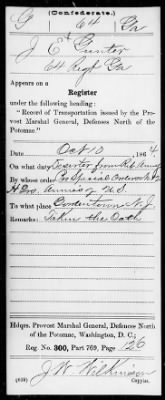 (Confederate.)
G 64 Ga
J. Ct Gunter
64 Regt Ga
Appears on a
Register
under the following heading:
"Record of Transportation issued by the Pro-
vost Marshal General, Defences North of the
Potomac."
Date Oct 10, 1864.
On what duty Deserter from Reb Army
By whose order Par Special Order No
Hd Qrs. Armies of U.S.
To what place Bordentown N.J
Remarks: Taken the Oath
Hdqrs. Provost Marshal General, Defences North
of the Potomac, Washington, D. C.;
Reg. No. 300, Part 769, Page 126
J. W. Wilkinson
(639) Copyist.